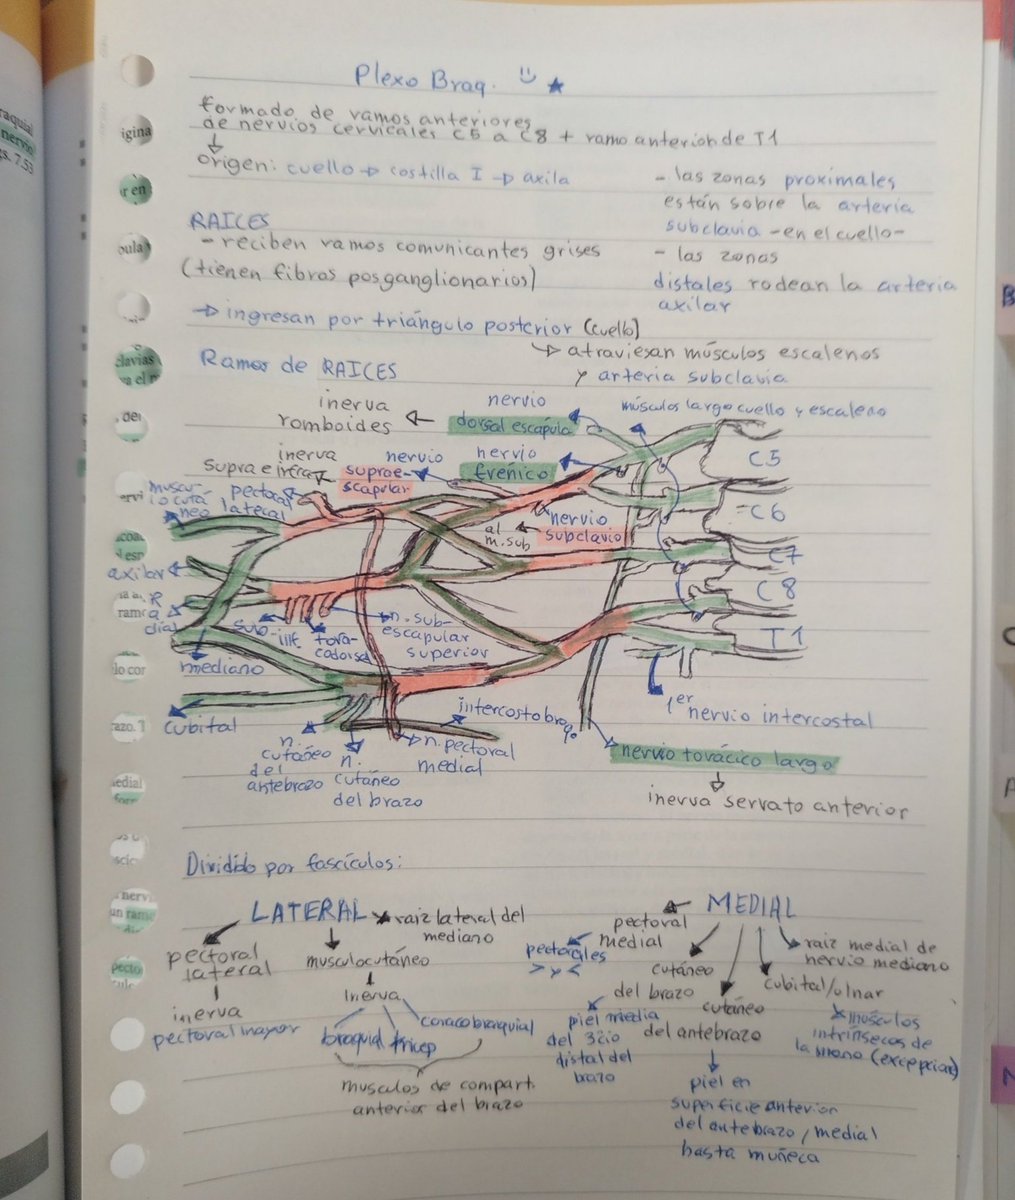 Plexo Braq.
formado de ramos anteriores
de nervios cervicales C5 a C8 + ramo anterior de T1
origen: cuello → costilla I → axila
- las zonas proximales
están sobre la arteria
subclavia -en el cuello-
- las zonas
distales rodean la arteria
axilar
RAICES
- reciben ramos comunicantes grises
(tienen fibras posganglionarios)
→ ingresan por triángulo posterior (cuello)
↳ atraviesan músculos escalenos
y arteria subclavia
Ramos de RAICES
inerva
romboides
nervio
dorsal escápula
músculos largo cuello y escaleno
inerva
supra e infra
nervio
suprae-
scapular
nervio
frénico
muscu-
lo cutá
neo
pectoral
lateral
nervio
subclavio
al
m. sub
C5
C6
C7
C8
T1
axilar
R
a
dial
mediano
cubital
sub-
inf.
tora-
codorsal
n. sub-
escapular
superior
intercostobraq.
n. pectoral
medial
n.
cutáneo
del
antebrazo
n.
cutáneo
del brazo
1er
nervio intercostal
nervio torácico largo
inerva serrato anterior
Dividido por fascículos:
LATERAL
raiz lateral del
mediano
pectoral
lateral
inerva
pectoral mayor
musculocutáneo
Inerva
braquial
bicep
coracobraquial
musculos de compart.
anterior del brazo
MEDIAL
pectoral
medial
pectorales
> y <
cutáneo
del brazo
piel media
del 3cio
distal del
brazo
cutáneo
del antebrazo
piel en
superficie anterior
del antebrazo, medial
hasta muñeca
cubital/ulnar
músculos
intrínsecos de
la mano
raiz medial de
nervio mediano
raquial
nervio
s. 7.53
igina
r en
oula
clavias
del